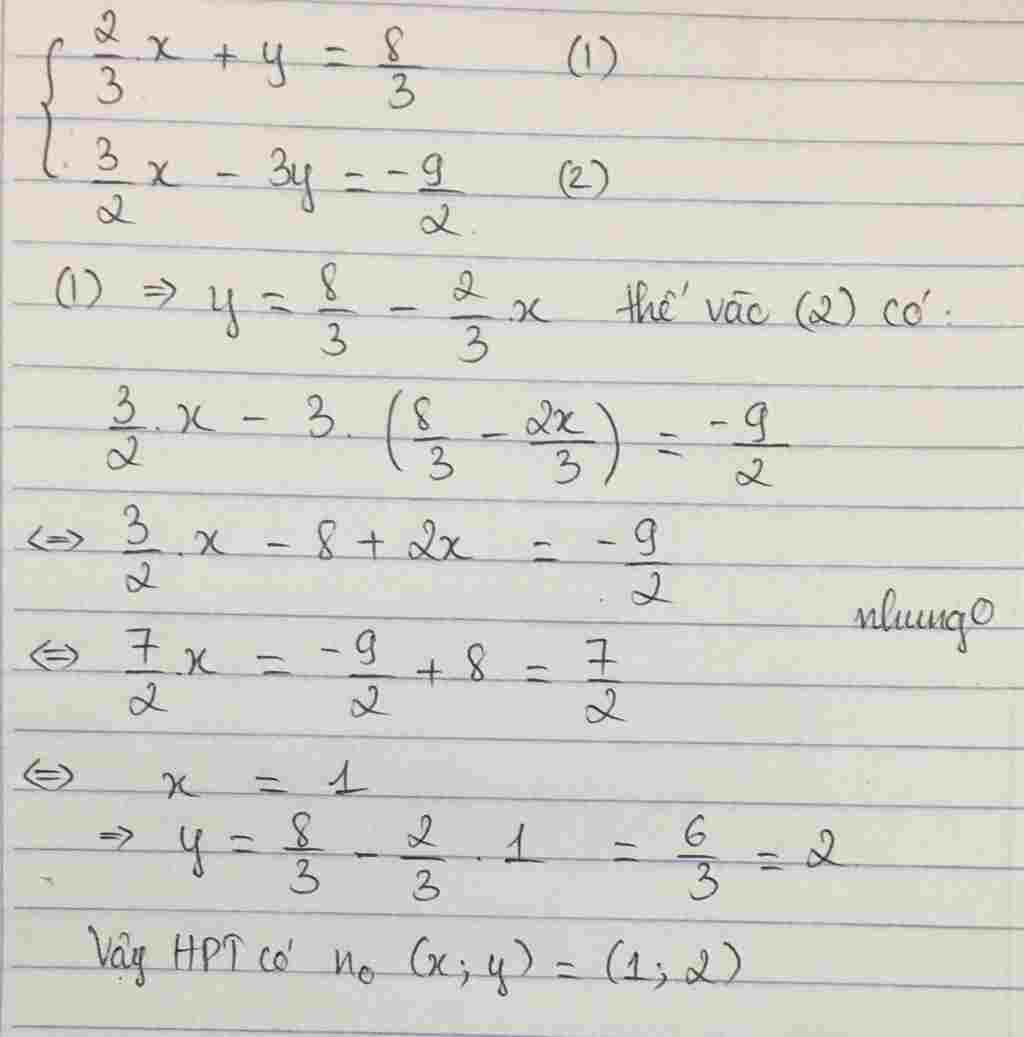 { 2/3 x + y = 8/3 (1)
3/2 x - 3y = -9/2 (2)
(1) ⇒ y = 8/3 - 2/3 x thế vào (2) có:
3/2 . x - 3. (8/3 - 2x/3) = -9/2
⇔ 3/2 . x - 8 + 2x = -9/2
nhung0
⇔ 7/2 x = -9/2 + 8 = 7/2
⇔ x = 1
⇒ y = 8/3 - 2/3 . 1 = 6/3 = 2
Vậy HPT có no (x; y) = (1; 2)